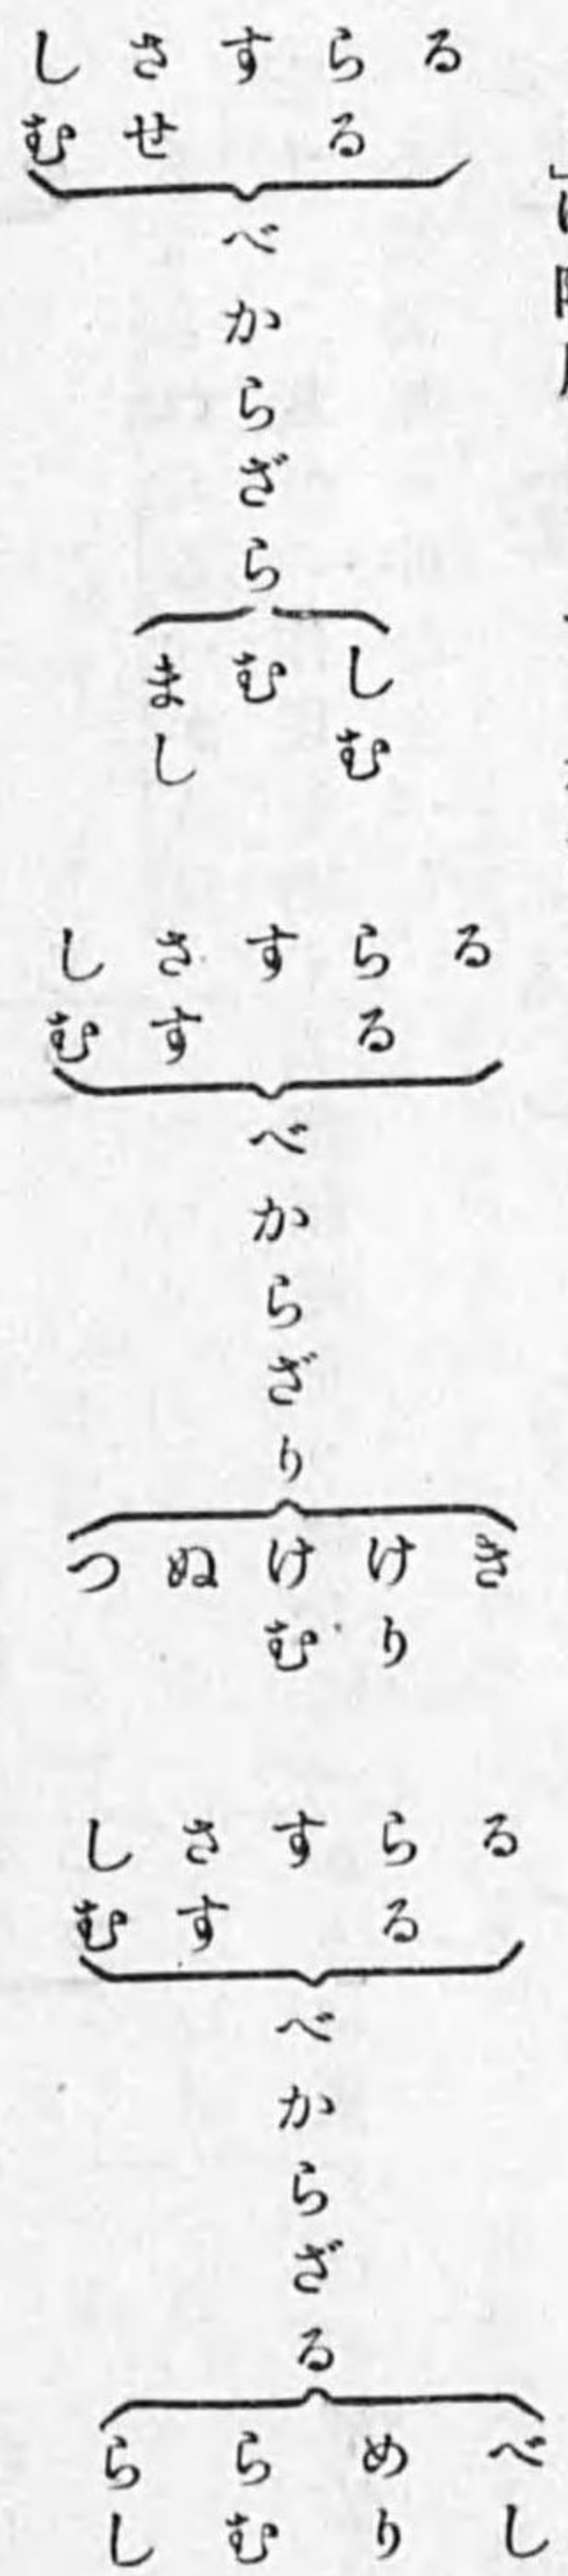 る
らる
す
させ
しむ
べからざら
しむ
む
まし
る
らる
す
さす
しむ
べからざり
き
けり
けむ
ぬ
つ
る
らる
す
さす
しむ
べからざる
べし
めり
らむ
らし